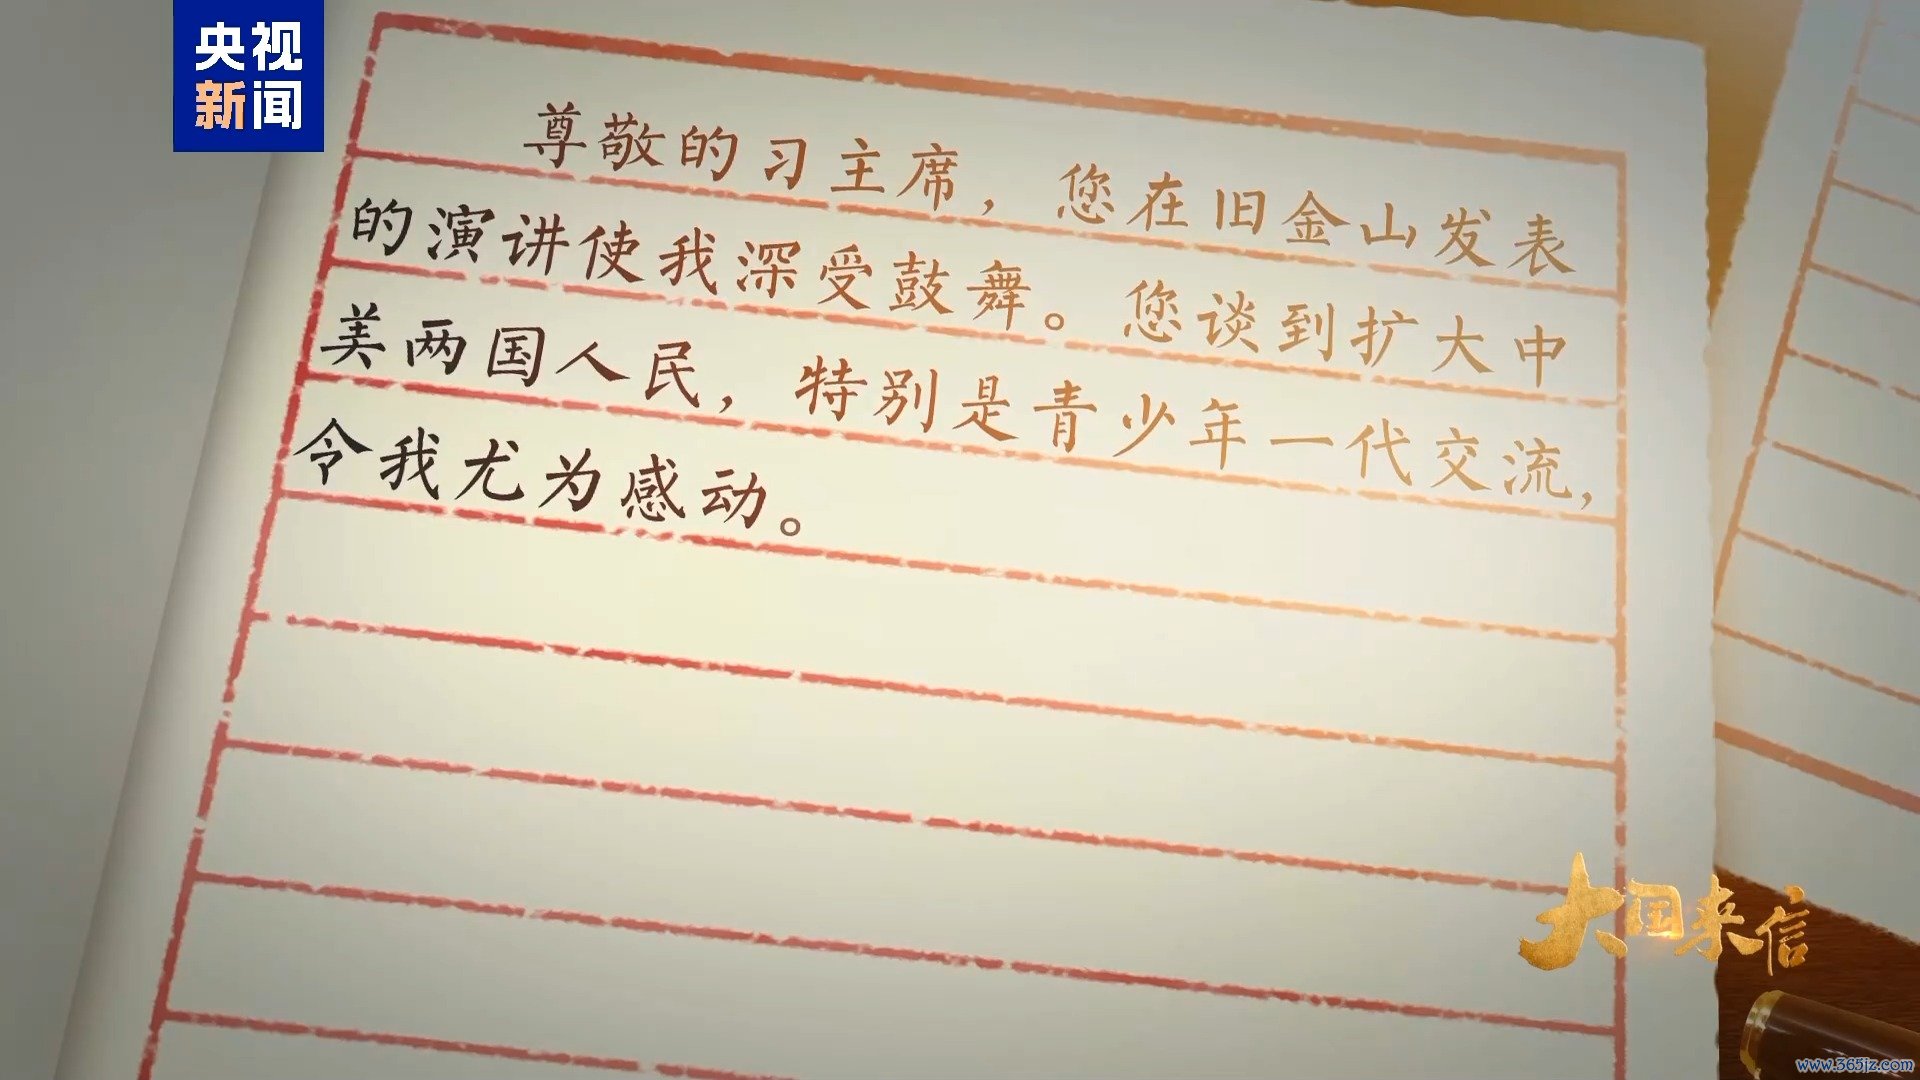 央视
新闻
尊敬的习主席，您在旧金山发表
的演讲使我深受鼓舞。您谈到扩大中
美两国人民，特别是青少年一代交流，
令我尤为感动。
大国来信
www.365jz.com